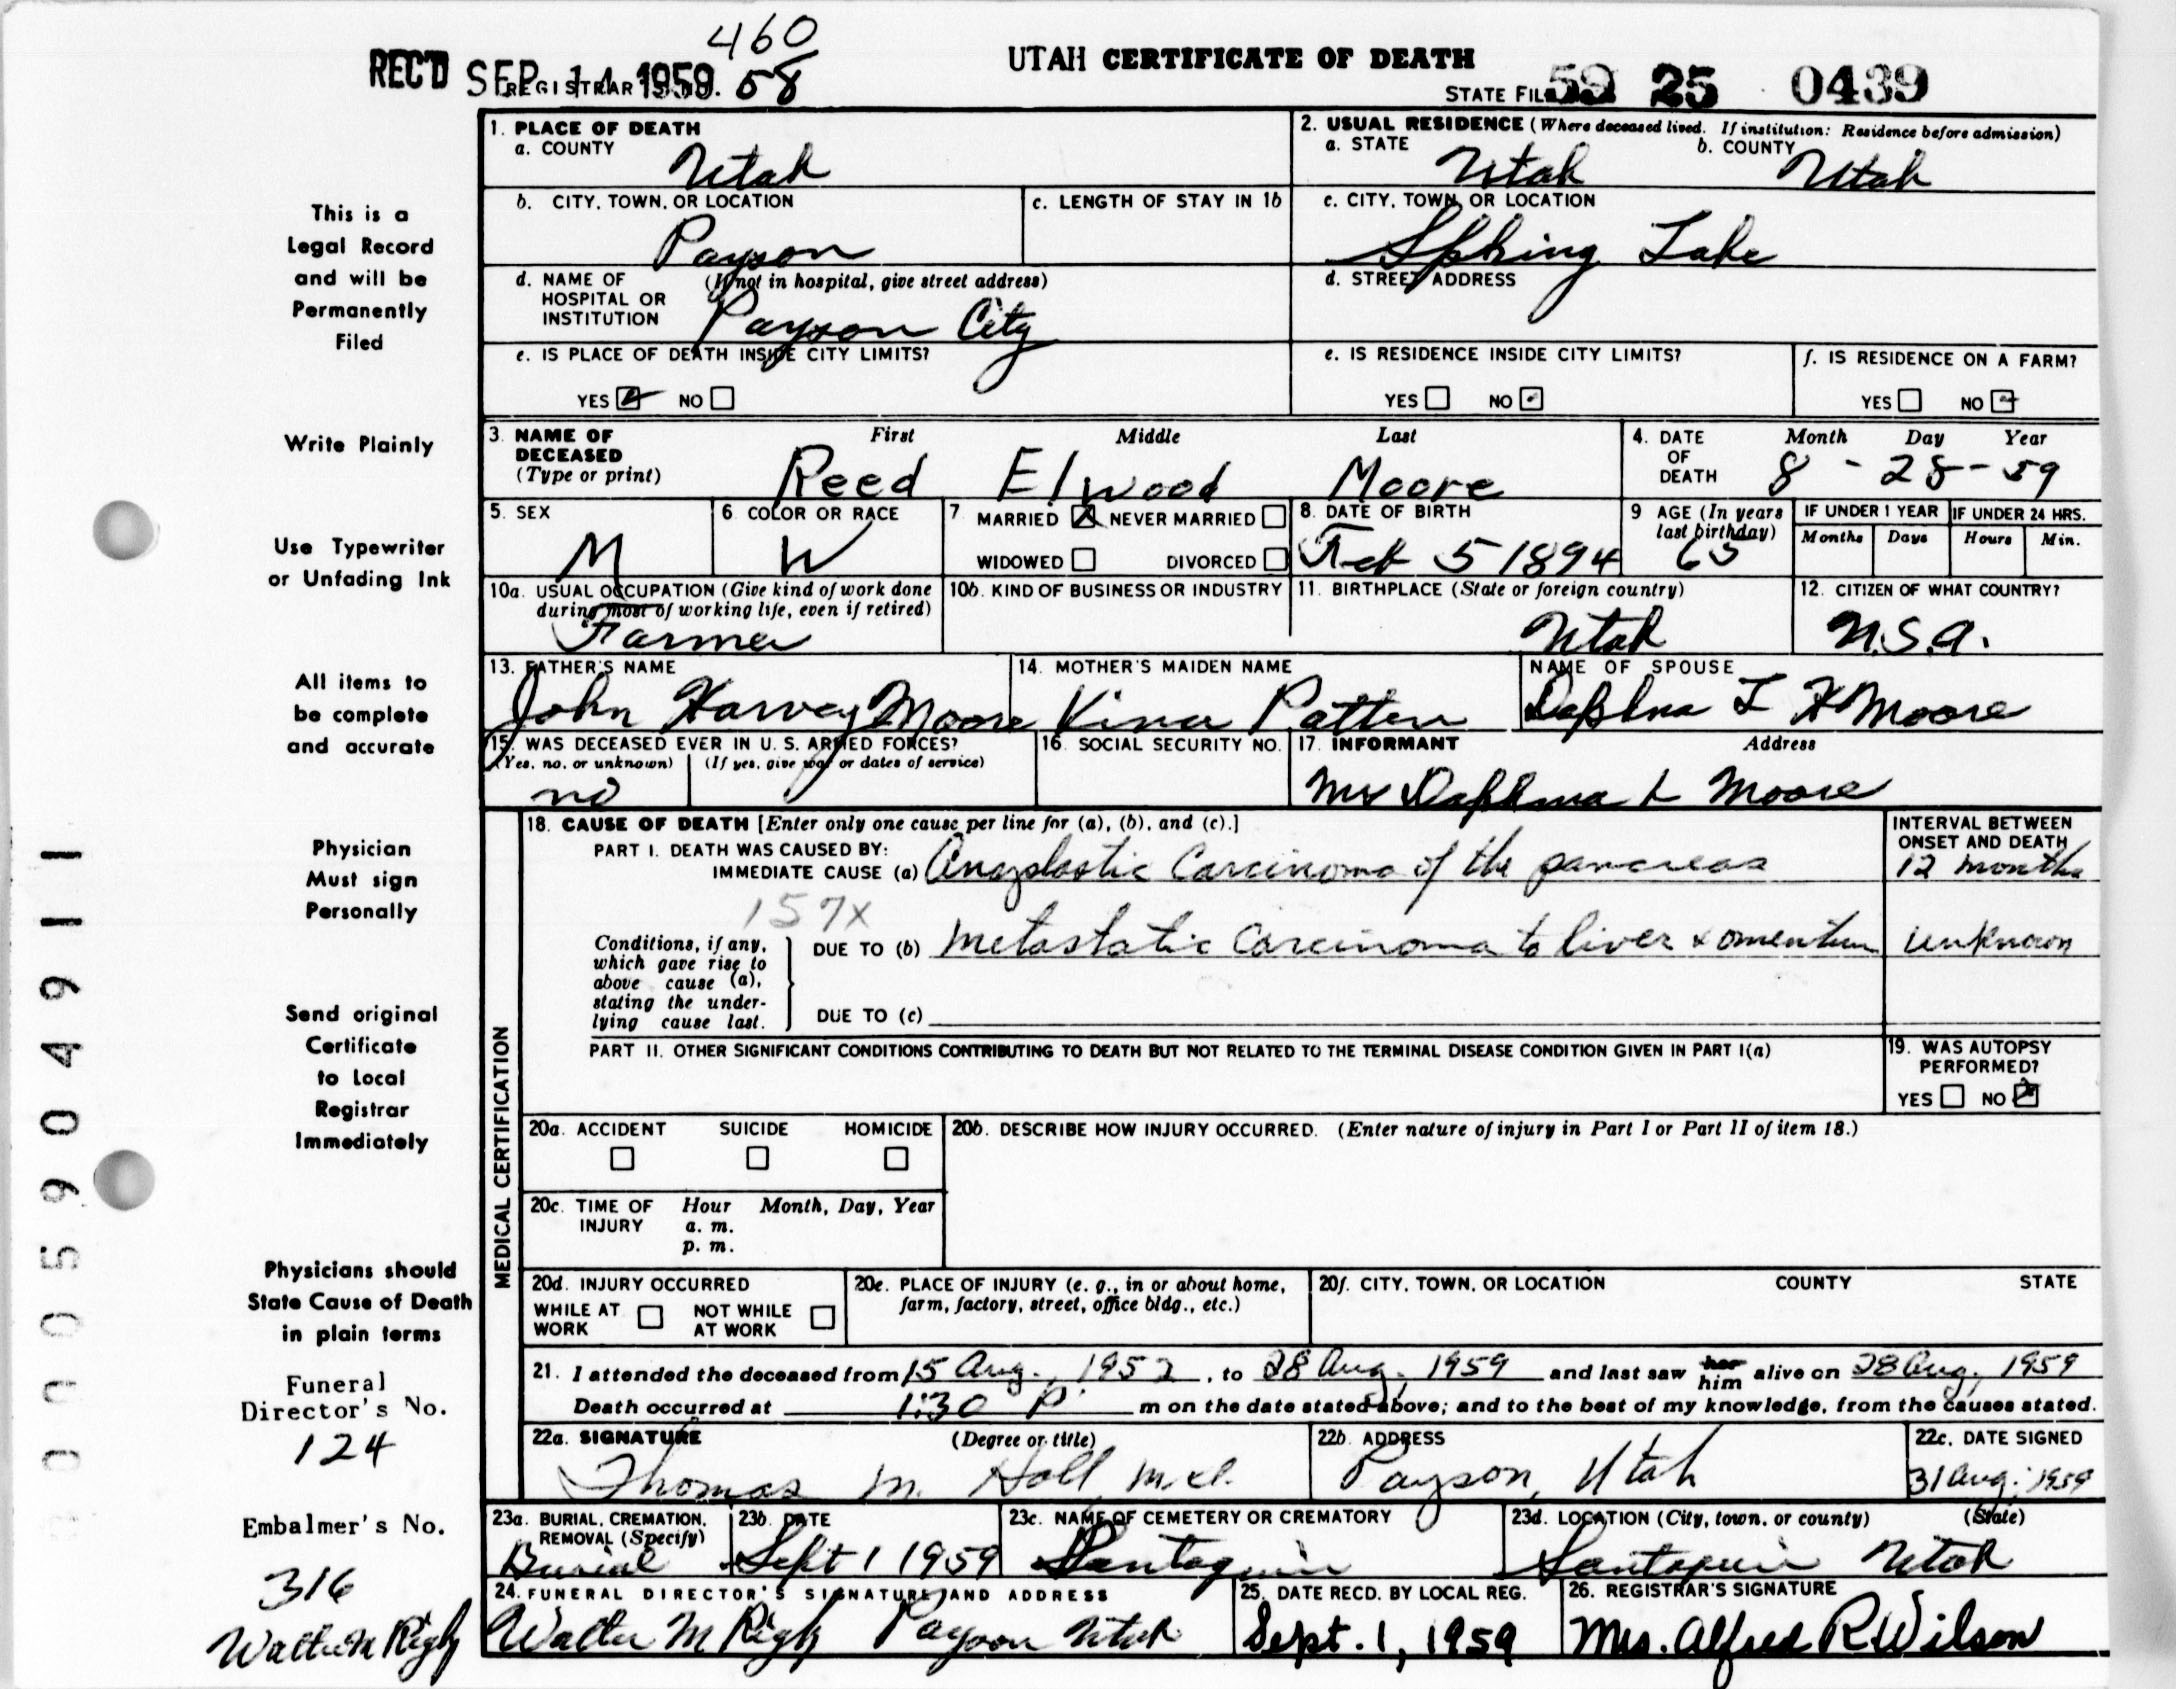 460
REC'D SEP 14 1959 REGISTRAR'S NO. 58
UTAH CERTIFICATE OF DEATH
STATE FILE 59 25 0439
1. PLACE OF DEATH
a. COUNTY
Utah
2. USUAL RESIDENCE (Where deceased lived. If institution: Residence before admission)
a. STATE b. COUNTY
Utah Utah
b. CITY, TOWN, OR LOCATION
Payson
c. LENGTH OF STAY IN 1b
c. CITY, TOWN, OR LOCATION
Spring Lake
d. NAME OF (If not in hospital, give street address)
HOSPITAL OR
INSTITUTION
Payson City
d. STREET ADDRESS
e. IS PLACE OF DEATH INSIDE CITY LIMITS?
YES NO
e. IS RESIDENCE INSIDE CITY LIMITS?
YES NO
f. IS RESIDENCE ON A FARM?
YES NO
3. NAME OF
DECEASED
(Type or print)
First Middle Last
Reed Elwood Moore
4. DATE
OF
DEATH
Month Day Year
8 - 28 - 59
5. SEX
M
6. COLOR OR RACE
W
7 MARRIED NEVER MARRIED
WIDOWED DIVORCED
8. DATE OF BIRTH
Feb 5 1894
9 AGE (In years
last birthday)
65
IF UNDER 1 YEAR
Months Days
IF UNDER 24 HRS.
Hours Min.
10a. USUAL OCCUPATION (Give kind of work done
during most of working life, even if retired)
Farmer
10b. KIND OF BUSINESS OR INDUSTRY
11. BIRTHPLACE (State or foreign country)
Utah
12. CITIZEN OF WHAT COUNTRY?
U.S.A.
13. FATHER'S NAME
John Harvey Moore
14. MOTHER'S MAIDEN NAME
Vina Patten
NAME OF SPOUSE
Daphna L H Moore
15. WAS DECEASED EVER IN U. S. ARMED FORCES?
(Yes, no, or unknown) (If yes, give war or dates of service)
no
16. SOCIAL SECURITY NO.
17. INFORMANT Address
Mrs Daphna L Moore
MEDICAL CERTIFICATION
18. CAUSE OF DEATH [Enter only one cause per line for (a), (b), and (c).]
PART I. DEATH WAS CAUSED BY:
IMMEDIATE CAUSE (a) Anaplastic Carcinoma of the pancreas
INTERVAL BETWEEN
ONSET AND DEATH
12 months
157X
Conditions, if any,
which gave rise to
above cause (a),
stating the under-
lying cause last.
DUE TO (b) Metastatic Carcinoma to liver & omentum unknown
DUE TO (c)
PART II. OTHER SIGNIFICANT CONDITIONS CONTRIBUTING TO DEATH BUT NOT RELATED TO THE TERMINAL DISEASE CONDITION GIVEN IN PART I(a)
19. WAS AUTOPSY
PERFORMED?
YES NO
20a. ACCIDENT SUICIDE HOMICIDE
20b. DESCRIBE HOW INJURY OCCURRED. (Enter nature of injury in Part I or Part II of item 18.)
20c. TIME OF Hour Month, Day, Year
INJURY a. m.
p. m.
20d. INJURY OCCURRED
WHILE AT NOT WHILE
WORK AT WORK
20e. PLACE OF INJURY (e. g., in or about home,
farm, factory, street, office bldg., etc.)
20f. CITY, TOWN, OR LOCATION COUNTY STATE
21. I attended the deceased from 15 Aug., 1952, to 28 Aug, 1959 and last saw her him alive on 28 Aug, 1959
Death occurred at 1:30 P m on the date stated above; and to the best of my knowledge, from the causes stated.
22a. SIGNATURE (Degree or title)
Thomas M. Holl M.D.
22b. ADDRESS
Payson, Utah
22c. DATE SIGNED
31 Aug. 1959
23a. BURIAL, CREMATION,
REMOVAL (Specify)
Burial
23b. DATE
Sept 1 1959
23c. NAME OF CEMETERY OR CREMATORY
Santaquin
23d. LOCATION (City, town, or county) (State)
Santaquin Utah
24. FUNERAL DIRECTOR'S SIGNATURE AND ADDRESS
Walter M Rigby Payson Utah
25. DATE RECD. BY LOCAL REG.
Sept. 1, 1959
26. REGISTRAR'S SIGNATURE
Mrs. Alfred R Wilson
This is a
Legal Record
and will be
Permanently
Filed
Write Plainly
Use Typewriter
or Unfading Ink
All items to
be complete
and accurate
Physician
Must sign
Personally
Send original
Certificate
to Local
Registrar
Immediately
Physicians should
State Cause of Death
in plain terms
Funeral
Director's No.
124
Embalmer's No.
316
Walter M Rigby
0005904911